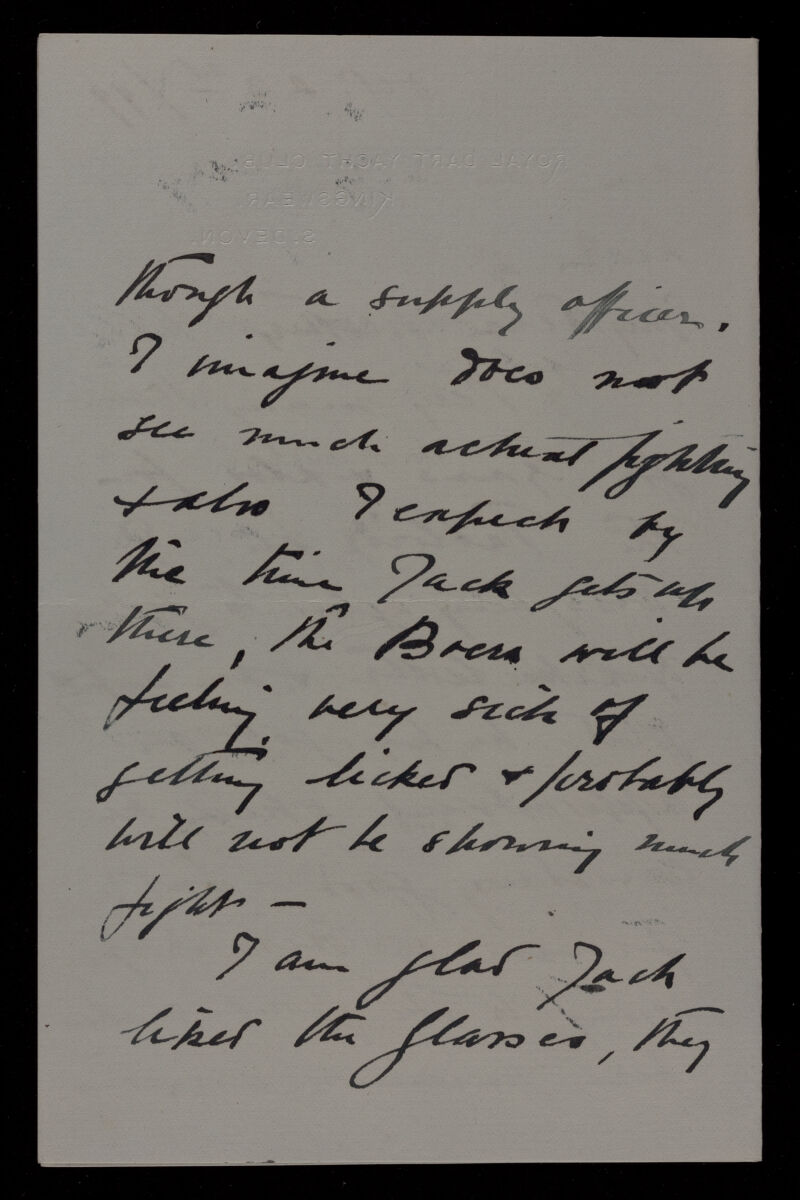 ROYAL DART YACHT CLUB.
KINGSWEAR.
S. DEVON.
though a supply officer.
I imagine does not
see much actual fighting
& also I expect by
the time Jack gets up
there, the Boers will be
feeling very sick of
getting licked & probably
will not be showing much
fight —
I am glad Jack
liked the Glasses, they